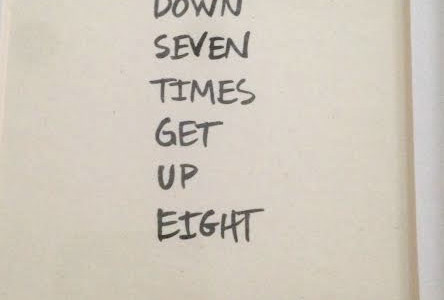 DOWN
SEVEN
TIMES
GET
UP
EIGHT